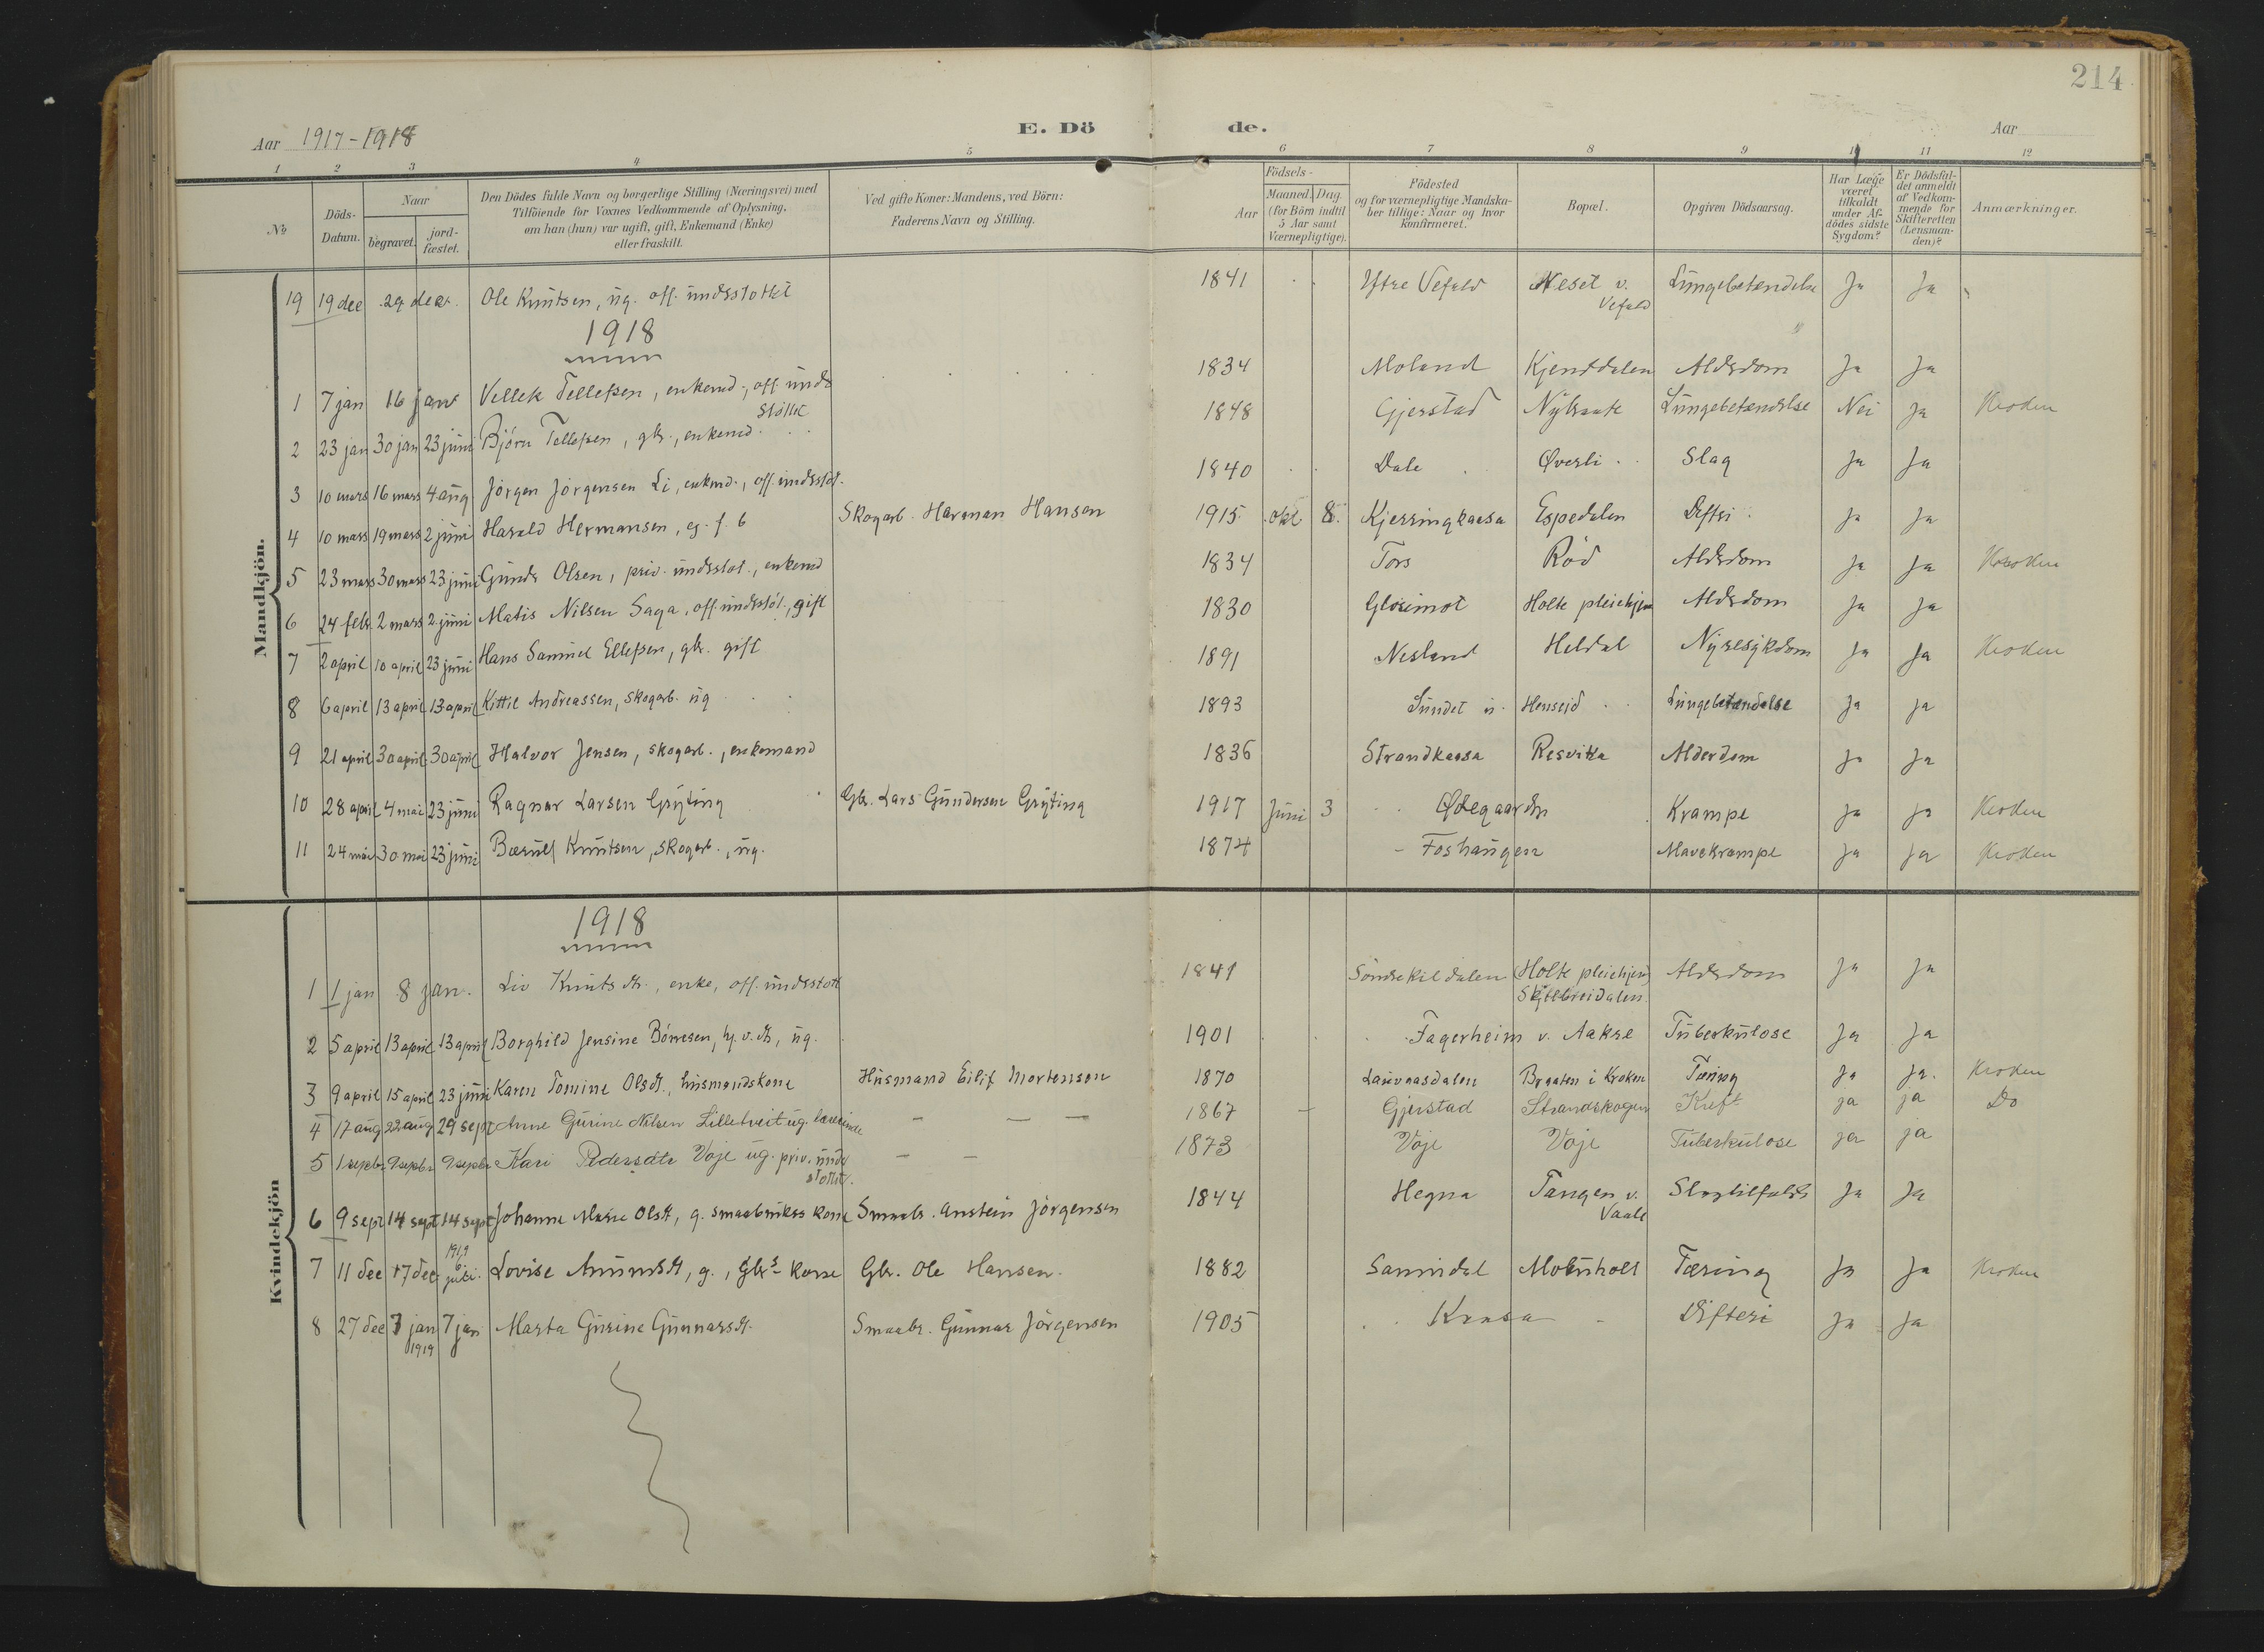 214
Aar 1917-1918 E. Dö de. Aar
1 2 3 4 5 6 7 8 9 10 11 12
No
Döds-Datum.
Naar
begravet.
jord-fæstet.
Den Dödes fulde Navn og borgerlige Stilling (Næringsvei) med
Tilföiende for Voxnes Vedkommende af Oplysning,
om han (hun) var ugift, gift, Enkemand (Enke)
eller fraskilt.
Ved gifte Koner: Mandens, ved Börn:
Faderens Navn og Stilling.
Födsels-
Aar
Maaned. Dag.
(for Börn indtil
5 Aar samt
Værnepligtige).
Födested
og for værnepligtige Mandska-
ber tillige: Naar og hvor
konfirmeret.
Bopæl.
Opgiven Dödsaarsag.
Har Læge
været
tilkaldt
under Af-
dödes sidste
Sygdom?
Er Dödsfal-
det anmeldt
af Vedkom-
mende for
Skifteretten
(Lensman-
den)?
Anmærkninger.
Mandkjön.
19 19 dec 29 dec. Ole Knutsen, ug. off. understottet 1841 Ytre Vefald Neset v. Vefald Lungebetendelse Ja Ja
1918
1 7 jan 16 jan Vellek Tellefsen, enkemd., off. understøttet 1834 Moland Kjenddalen Aldrdom Ja Ja
2 23 jan 30 jan 23 juni Björn Tellefsen, gbr., enkemd. 1848 Gjerstad Nybraate Lungebetendelse Nei Ja Kroken
3 10 mars 16 mars 4 aug Jörgen Jörgensen Li, enkmd., off. understöt. 1840 Dale Øverli Slag Ja Ja
4 10 mars 19 mars 2 juni Harald Hermansen, eg. f. 6 Skogarb. Harman Hansen 1915 okt 8. Kjerringkaasa Espedalen Difteri Ja Ja
5 23 mars 30 mars 23 juni Gunder Olsen, priv. understøt., enkemd 1834 Tors Röd Aldrdom Ja Ja Kroken
6 24 febr. 2 mars 2 juni Matis Nilsen Saga, off. understöt., gift 1830 Glosimot Holte pleiehjem Aldrdom Ja Ja
7 2 april 10 april 23 juni Hans Samuel Ellefsen, gbr. gift 1891 Nesland Heldal Nyresykdom Ja Ja Kroken
8 6 april 13 april 13 april Kittil Andreassen, skogarb. ug 1893 Sundet u. Henseid Lungebetændelse Ja Ja
9 21 april 30 april 30 april Halvor Jensen, skogarb., enkemand 1836 Strandkaasa Resvika Alderdom Ja Ja
10 28 april 4 mai 23 juni Ragnar Larsen Gryting Gbr. Lars Gundersen Gryting 1917 Juni 3 Ødegaarden Krampe Ja Ja Kroken
11 24 mai 30 mai 23 juni Bærulf Knutsen, skogarb., ug. 1874 Foshaugen Mavekrampe Ja Ja Kroken
Kvindekjön
1918
1 1 jan 8 jan. Liv Knuts dt., enke, off. understott 1841 Söndre Kildalen Holte pleiehjem Skjelbreidalen Aldrdom Ja Ja
2 5 april 13 april 13 april Borghild Jensine Börresen, hj. v. dt, ug. 1901 Fagerheim v. Aakre Tuberkulose Ja Ja
3 9 april 15 april 23 juni Karen Tomine Olsdt., husmandskone Husmand Eilif Mortensen 1870 Lauvaasdalen Braaten i Kroken Tæring Ja Ja. Kroken
4 17 aug 22 aug 29 sept Anne Gurine Nilsen Lilletveit ug. lærerinde — — — 1867 — Gjerstad Strandskogen Kreft ja ja Do
5 1 septbr 9 septbr 9 septbr Kari Pedersdtr Voje ug. priv. understottet. — — 1873 Voje Voje Tuberkulose ja ja
6 9 sept 14 sept 14 sept Johanne Marie Olsdt, g. smaabrukers kone Smaabr. Anstein Jörgensen 1844 Hegna Tangen v. Vaale Slagtilfælde Ja Ja
7 11 dec 17 dec 1919 6 juli. Lovise Amundsdt, g., Gbrs kone Gbr. Ole Hansen. 1882 Sannidal Moenholt Tæring Ja Ja Kroken
8 27 dec 7 jan 1919 7 jan Marta Gurine Gunnarsdt. Smaabr. Gunnar Jörgensen 1905 Kraasa Difteri Ja Ja